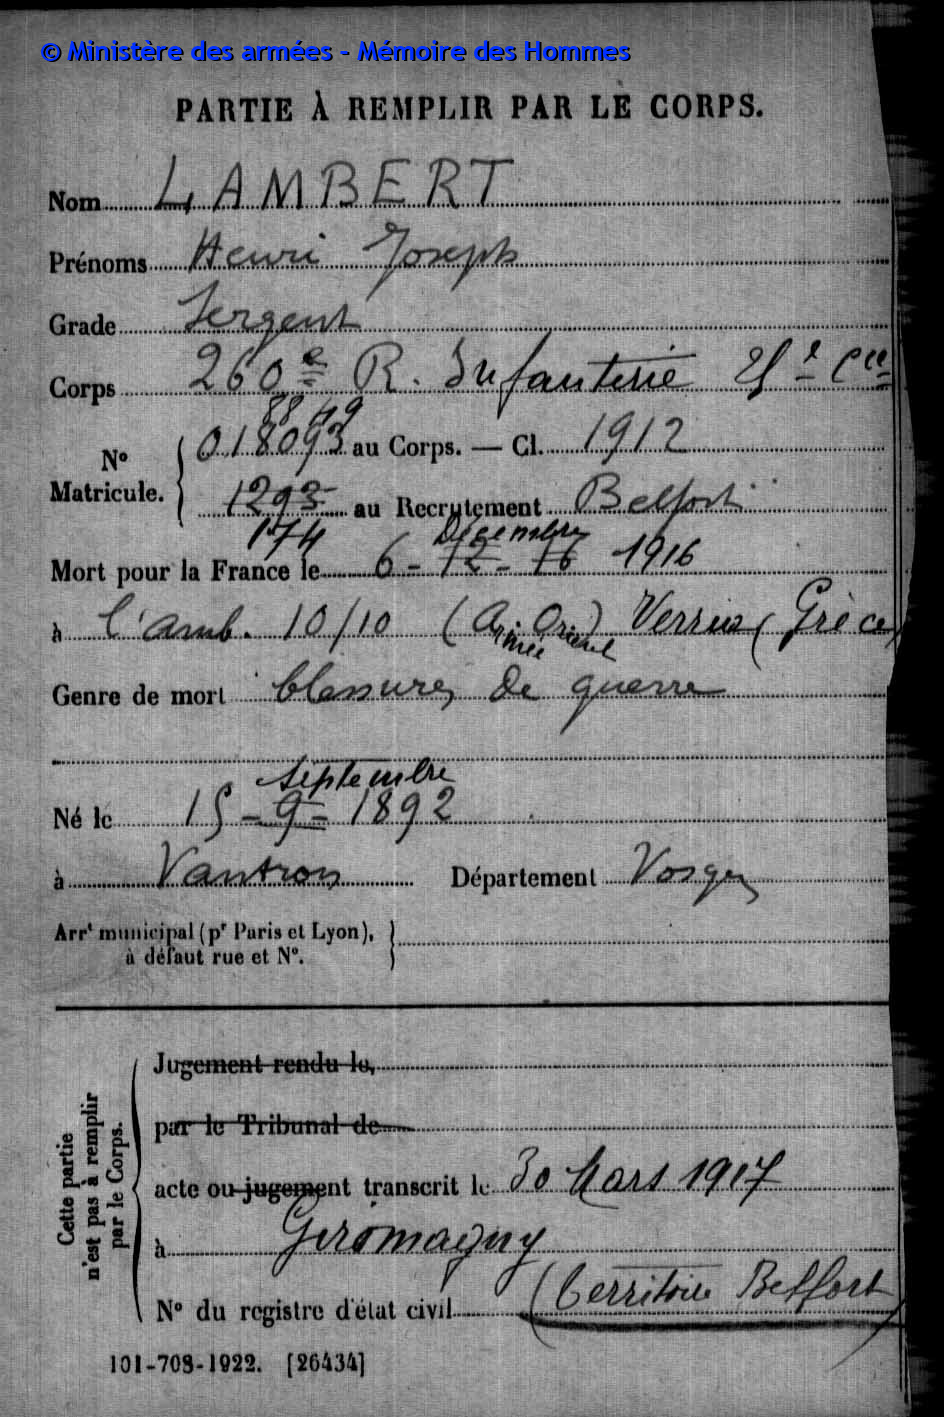 © Ministère des armées - Mémoire des Hommes
PARTIE À REMPLIR PAR LE CORPS.
Nom LAMBERT
Prénoms Henri Joseph
Grade Sergent
Corps 260e R. Infanterie
8849
No Matricule. 018093 au Corps. — Cl. 1912
1293 au Recrutement Belfort
174 Décembre
Mort pour la France le 6-12-16 1916
à l'amb. 10/10 (A. O.) Verria (Grèce)
Armée Orient
Genre de mort blessures de guerre
septembre
Né le 15-9-1892
à Ventron Département Vosges
Arrt municipal (pr Paris et Lyon),
à défaut rue et No.
Cette partie n'est pas à remplir par le Corps.
Jugement rendu le,
par le Tribunal de
acte ou jugement transcrit le 30 Mars 1917
à Giromagny
No du registre d'état civil (Territoire Belfort
101-708-1922. [26434]